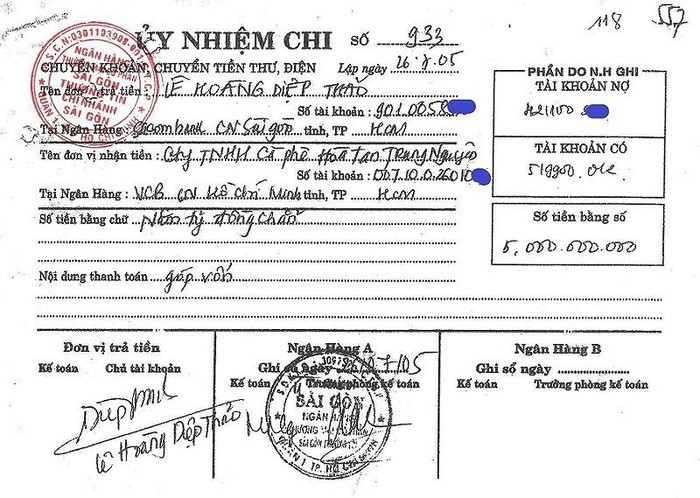 118 557
ỦY NHIỆM CHI SỐ 933
CHUYỂN KHOẢN, CHUYỂN TIỀN THƯ, ĐIỆN Lập ngày 26.7.05
Tên đơn vị trả tiền: LÊ HOÀNG DIỆP THẢO
Số tài khoản: 901.0058
Tại Ngân Hàng: Sacombank CN Sài gòn tỉnh, TP HCM
Tên đơn vị nhận tiền: Cty TNHH Cà phê Hòa Tan Trung Nguyên
Số tài khoản: 007.10.0.26010
Tại Ngân Hàng: VCB CN Hồ Chí Minh tỉnh, TP HCM
Số tiền bằng chữ Năm tỷ đồng chẵn
Nội dung thanh toán góp vốn
PHẦN DO N.H GHI
TÀI KHOẢN NỢ
421100
TÀI KHOẢN CÓ
519900.
Số tiền bằng số
5.000.000.000
Đơn vị trả tiền
Kế toán Chủ tài khoản
Lê Hoàng Diệp Thảo
Ngân Hàng A
Ghi sổ ngày 26/07/05
Kế toán Trưởng phòng kế toán
Ngân Hàng B
Ghi sổ ngày
Kế toán Trưởng phòng kế toán
NGÂN HÀNG
THƯƠNG MẠI CỔ PHẦN
SÀI GÒN
THƯƠNG TÍN
CHI NHÁNH
SÀI GÒN
SÀI GÒN
NGÂN HÀNG
SÀI GÒN THƯƠNG TÍN
QUẬN 1 T.P. HỒ CHÍ MINH